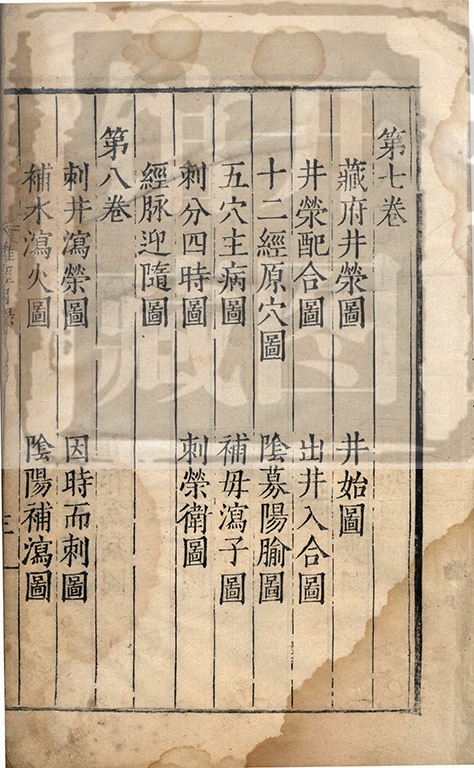 第七卷
藏府井滎圖 井始圖
井滎配合圖 出井入合圖
十二經原穴圖 陰募陽腧圖
五穴主病圖 補母瀉子圖
刺分四時圖 刺榮衛圖
經脉迎隨圖
第八卷
刺井瀉滎圖 因時而刺圖
補水瀉火圖 陰陽補瀉圖
三